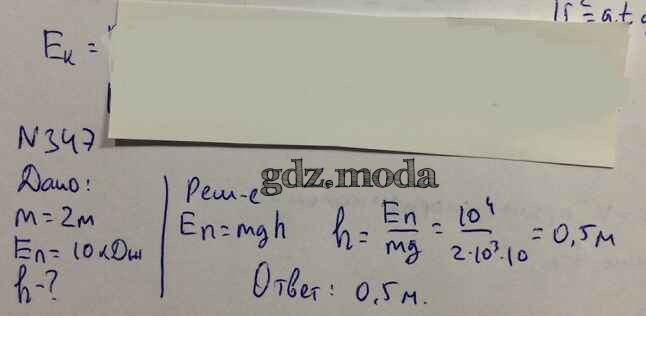 v²=a.t.
Eк =
N347
Дано:
m=2м
Eп=10кДж
h-?
Реш-е
gdz.moda
Eп=mgh h= Eп/mg = 10⁴/2·10³·10 = 0,5м
Ответ: 0,5м.